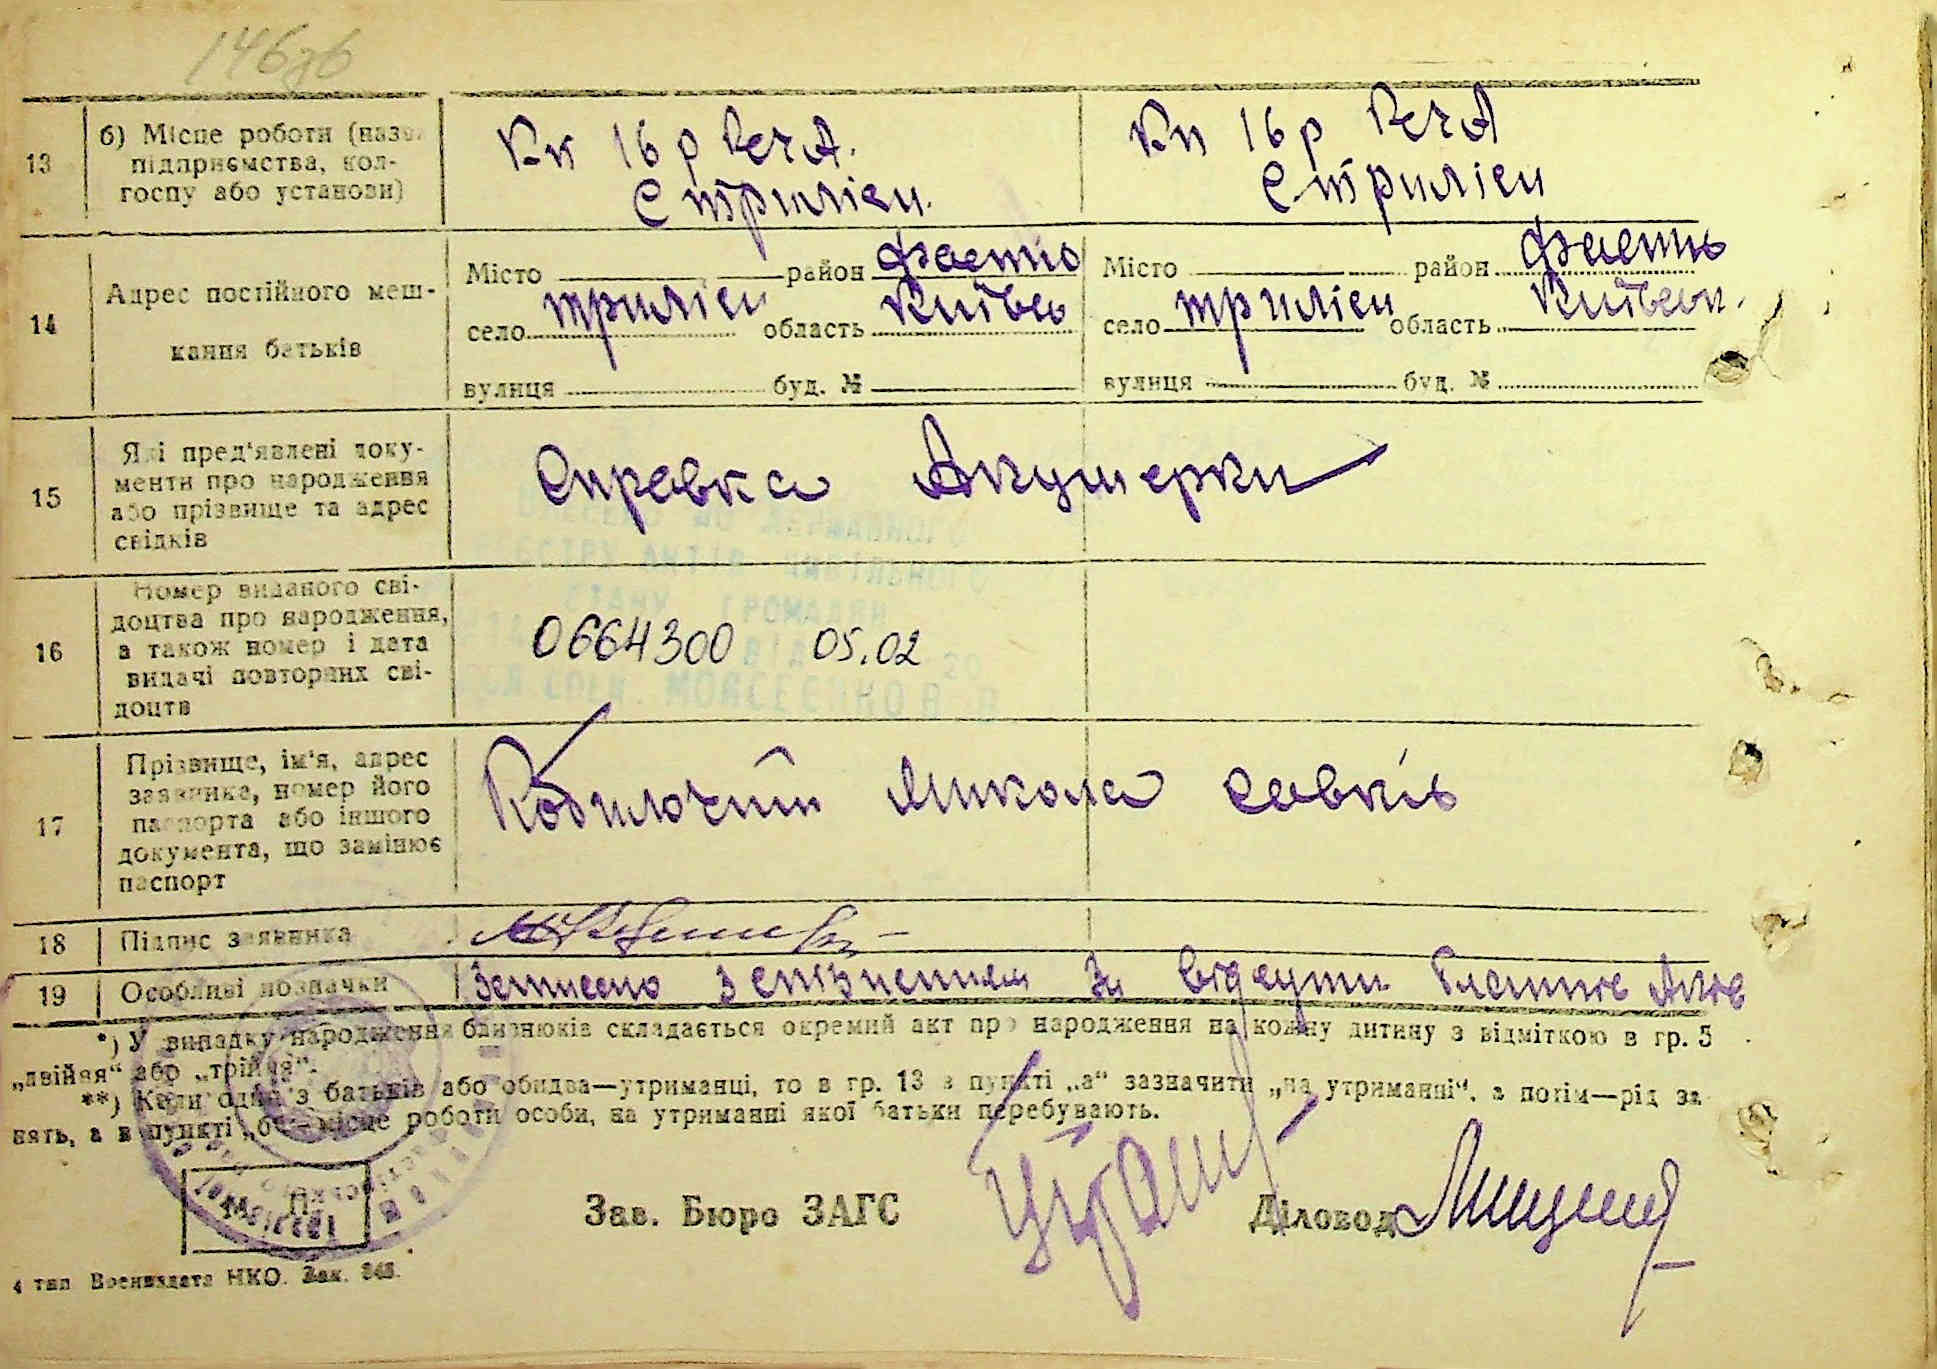 146зв
13
б) Місце роботи (назв.
підприємства, кол-
госпу або установи)
Кп 16 р
Стриліси.
Кп 16 р
Стриліси
14
Адрес постійного меш-
кання батьків
Місто район Фастів
село триліси область Київсь
вулиця буд. №
Місто район Фастів
село триліси область Київськ.
вулиця буд. №
15
Які пред'явлені доку-
менти про народження
або прізвище та адрес
свідків
Справка Акушерки
16
Номер виданого сві-
доцтва про народження,
а також номер і дата
видачі повторних сві-
доцтв
0664300 05.02
17
Прізвище, ім'я, адрес
заявника, номер його
паспорта або іншого
документа, що замінює
паспорт
Кобилочний Микола Савків
18
Підпис заявника
19
Особливі позначки
Записано з спізненням За відсути бланків Актів
*) У випадку народження близнюків складається окремий акт про народження на кожну дитину з відміткою в гр. 5
„двійня“ або „трійня“.
**) Коли один з батьків або обидва—утриманці, то в гр. 13 в пункті „а“ зазначити „на утриманні“, а потім—рід за-
нять, а в пункті „б“—місце роботи особи, на утриманні якої батьки перебувають.
М П
Зав. Бюро ЗАГС
Діловод
4 тип Воениздата НКО. Зак. 343.